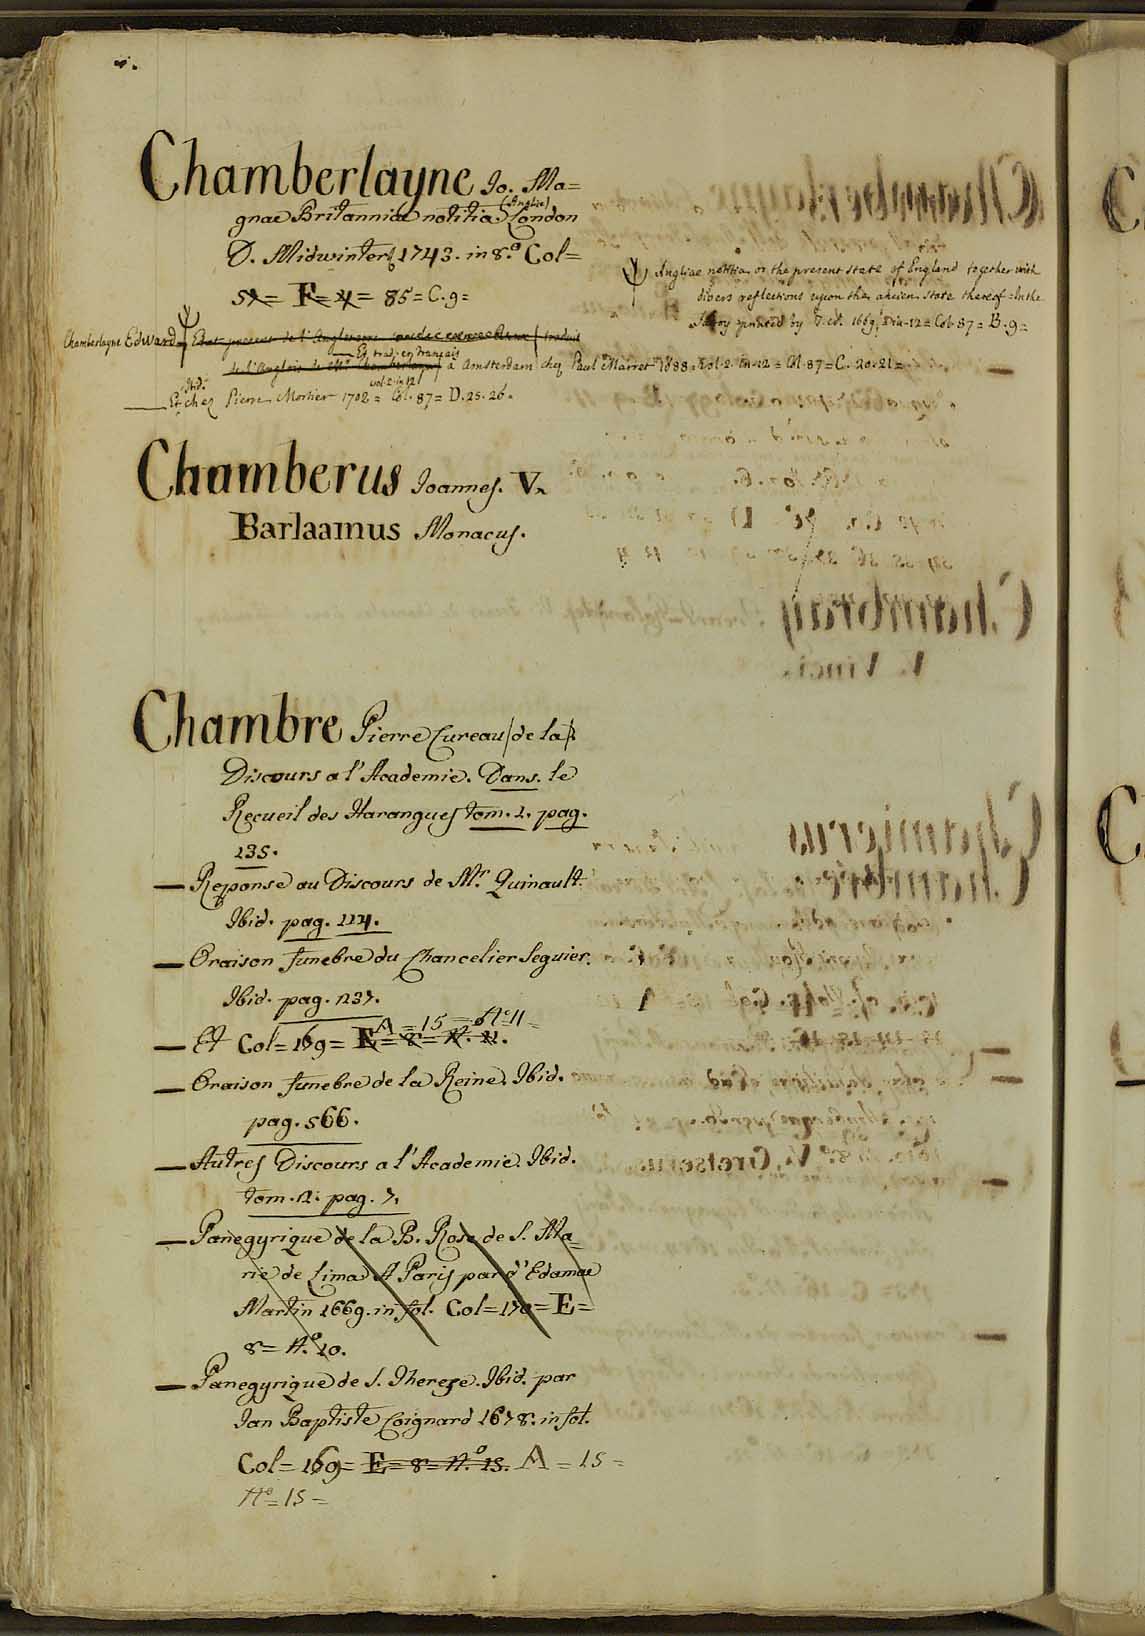 Chamberlayne Jo. Ma=
gnae Britanniae notitia (Anglice) London
D. Midwinter 1743. in 8.º Col=
5x= F= 4= 85=C.9=
Angliae notitia, or the present state of England together with
divers reflections upon the ancien state thereof = In the
Savoy printed by T. 1669 in-12= Col-87= B.9=
Chamberlayne Edward Etat present de l'Angleterre traduit
Et trad. en français
de l'Anglois de Mr. Chamberlayne à Amsterdam chez Paul Marret 1688. vol. 2. in-12 = Col-87= C. 20.21=
Ibid. vol. 2. in 12
Et chez Pierre Mortier 1702 = Col. 87= D. 25. 26.
Chamberus Joannes. V.
Barlaamus Monacus.
Chambre Pierre Cureau (de la)
Discours a l'Academie. Dans. le
Recueil des Harangues tom. 1. pag.
135.
— Reponse au Discours de Mr. Quinault.
Ibid. pag. 114.
— Oraison funebre du Chancelier Seguier.
Ibid. pag. 137.
A = 15 = Nº 11 =
— Et Col= 169= E= 8= N. 11.
— Oraison funebre de la Reine. Ibid.
pag. 566.
— Autres Discours a l'Academie. Ibid.
tom. 2. pag. 7.
— Panegyrique de la B. Rose de S. Ma=
rie de Lima A Paris par d'Edamae
Martin 1669. in fol. Col=170=E=
8= N.º 10.
— Panegyrique de S. Therese. Ibid. par
Jan Baptiste Coignard 1678. in fol.
Col= 169= E= 8= N.º 15. A = 15 =
Nº = 15 =